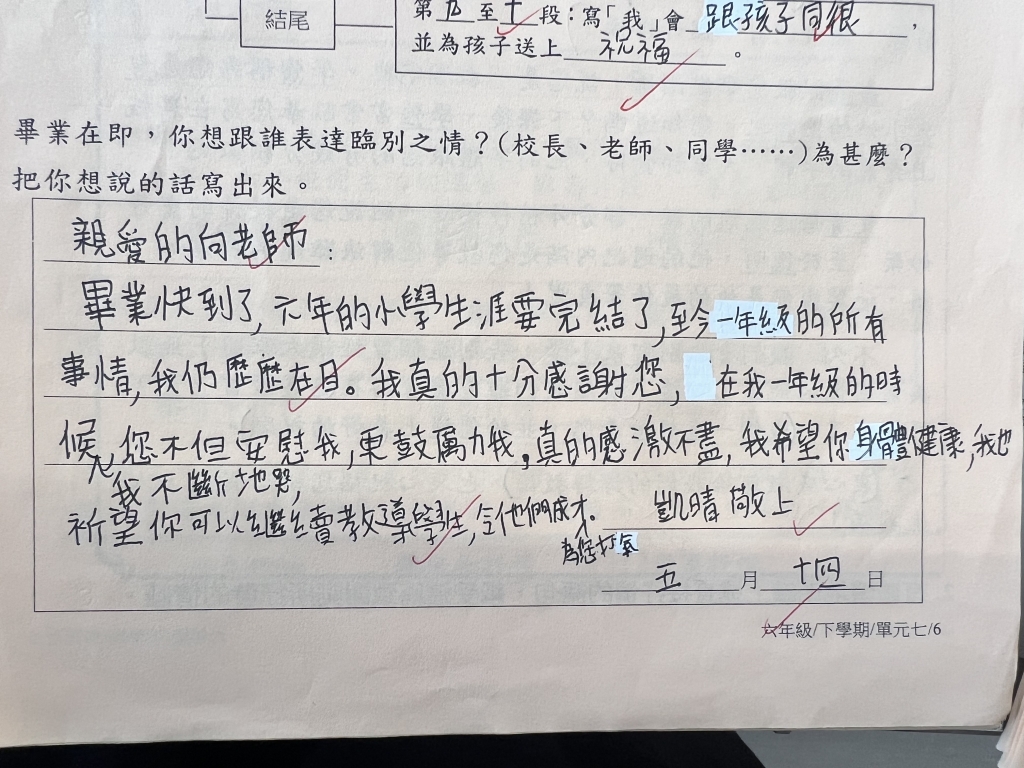 結尾
第九至十段：寫「我」會跟孩子同很，
並為孩子送上祝福。
畢業在即，你想跟誰表達臨別之情？(校長、老師、同學……)為甚麼？
把你想說的話寫出來。
親愛的向老師：
畢業快到了，六年的小學生涯要完結了，至今一年級的所有
事情，我仍歷歷在目。我真的十分感謝您，在我一年級的時
候，您不但安慰我，更鼓厲力我，真的感激不盡，我希望你身體健康，我也
我不斷地哭，
祈望你可以繼續教導學生，令他們成才。凱晴敬上
為您打氣
五月十四日
六年級/下學期/單元七/6